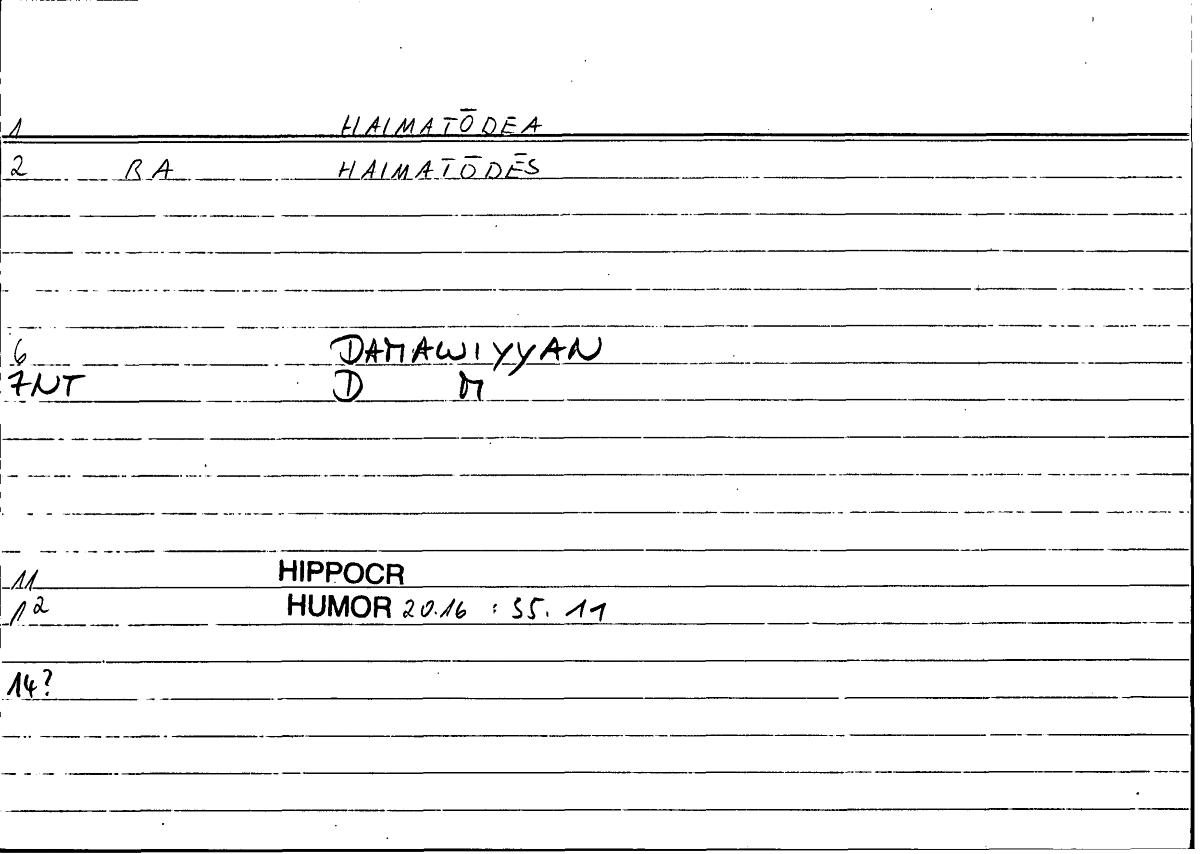 1 HAIMATŌDEA
2 BA HAIMATŌDĒS
6 DAMAWIYYAN
7NT D M
11 HIPPOCR
12 HUMOR 20.16 : 35. 11
14?